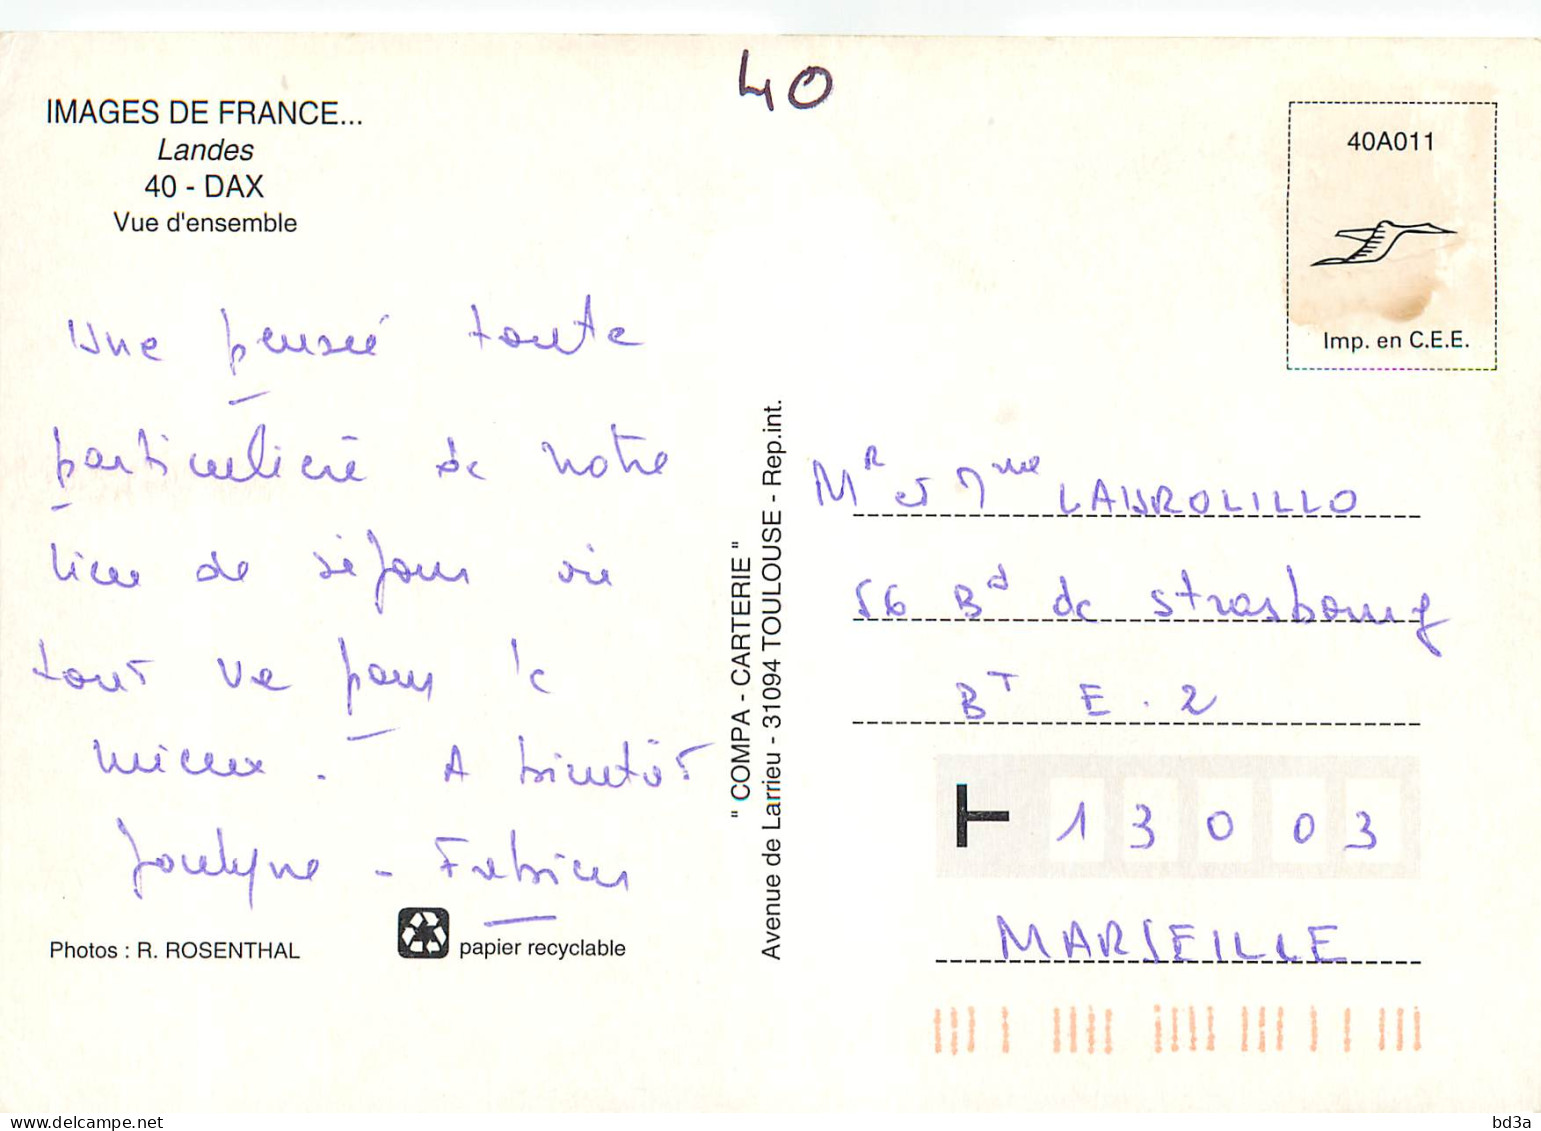 40
IMAGES DE FRANCE...
Landes
40 - DAX
Vue d'ensemble
40A011
Imp. en C.E.E.
Une pensée toute
particulière de notre
lieu de séjour où
tout va pour le
mieux. A bientôt
Jocelyne - Fabrice
Photos : R. ROSENTHAL
papier recyclable
" COMPA - CARTERIE "
Avenue de Larrieu - 31094 TOULOUSE - Rep.int.
Mr et Mme LAUROLILLO
56 Bd de Strasbourg
BT E.2
13003
MARSEILLE
delcampe.net
bd3a